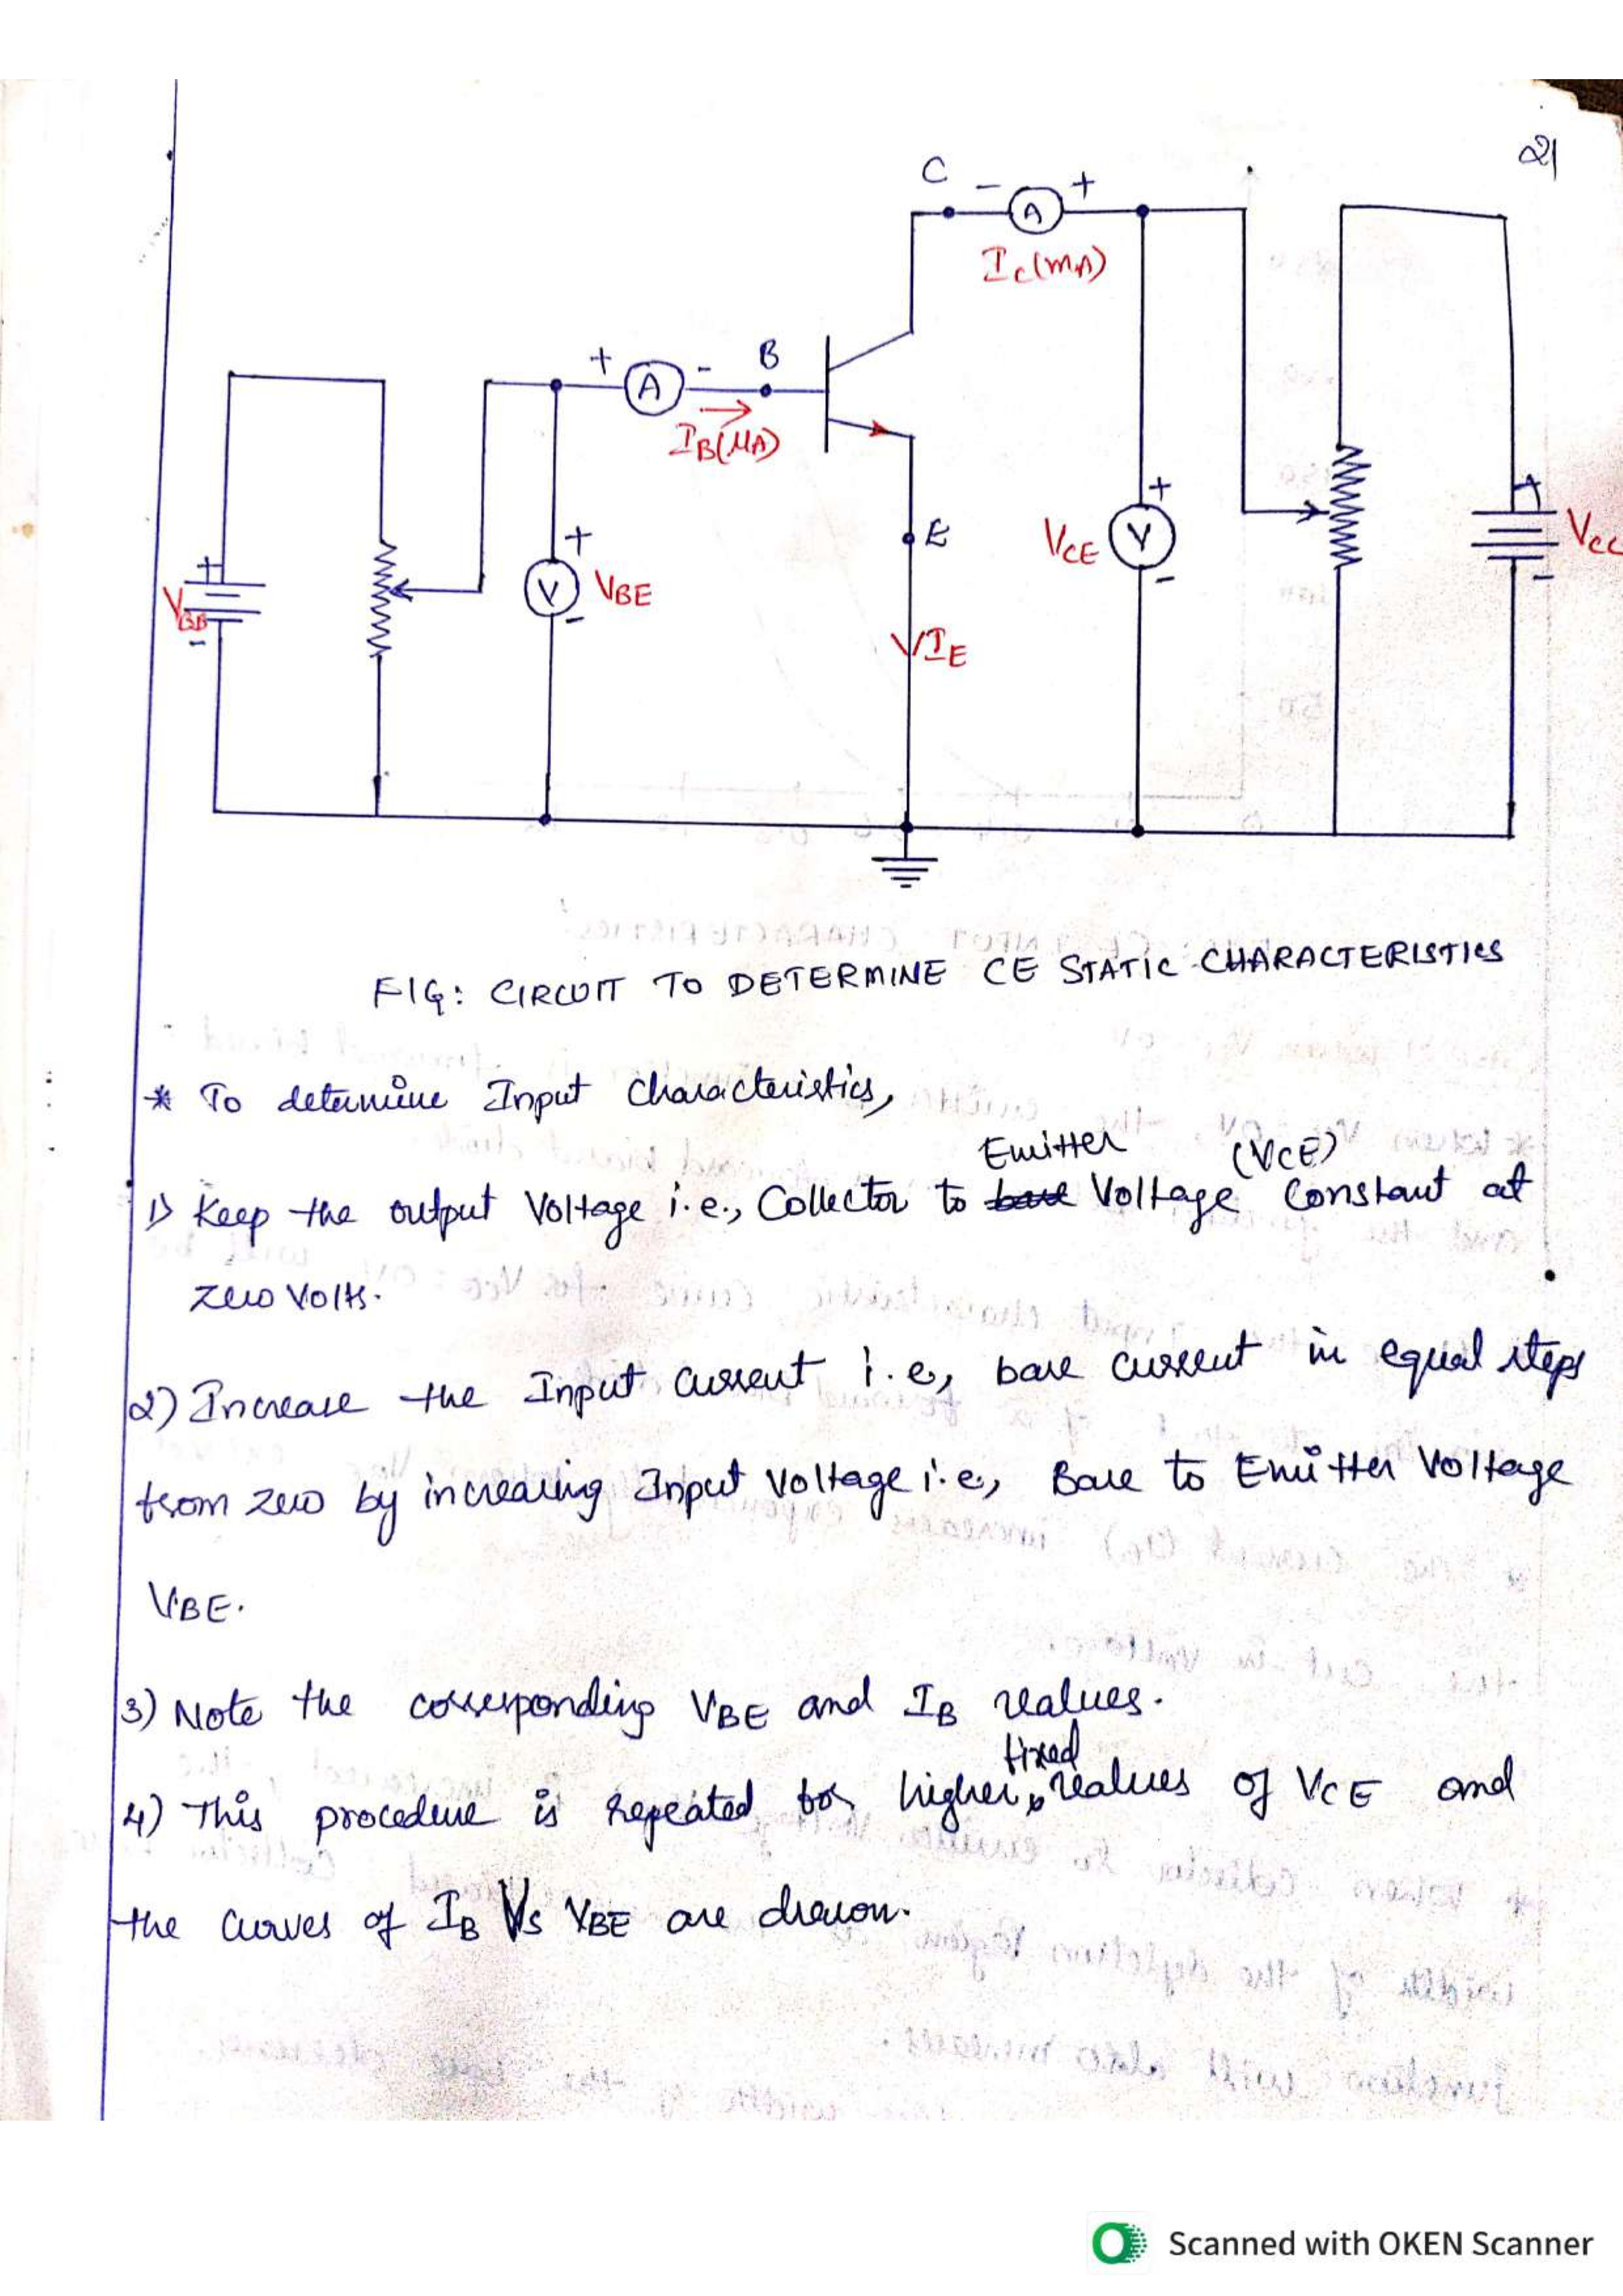 21
C - A +
Ic(mA)
+ A - B
IB(μA)
+
V VBE
-
E
+
VCE V
-
IE
+
VBB
-
+
VCC
-
FIG: CIRCUIT TO DETERMINE CE STATIC CHARACTERISTICS
* To determine Input Characteristics,
Emitter (VCE)
1) Keep the output Voltage i.e., Collector to base Voltage Constant at
zero Volts.
2) Increase the Input current i.e, base current in equal steps
from zero by increasing Input Voltage i.e., Base to Emitter Voltage
VBE.
3) Note the corresponding VBE and IB values.
fixed
4) This procedure is repeated for higher values of VCE and
the curves of IB Vs VBE are drawn.
Scanned with OKEN Scanner